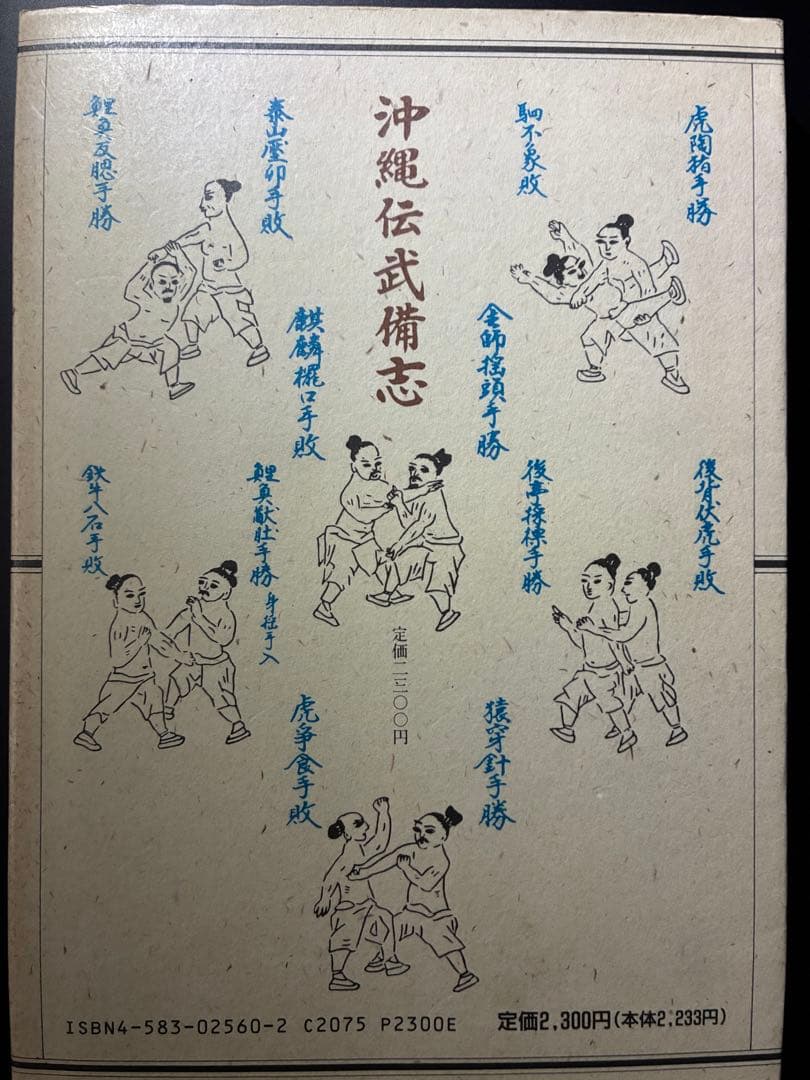 沖縄伝武備志
虎陶猪手勝
駟不象敗
泰山壓卵手敗
鯉魚反腮手勝
金師搖頭手勝
麒麟欄口手敗
後背伏虎手敗
後亭採標手勝
鯉魚献肚手勝 身從手入
鉄牛入石手敗
定価二三〇〇円
猿穿針手勝
虎争食手敗
ISBN4-583-02560-2 C2075 P2300E
定価2,300円(本体2,233円)